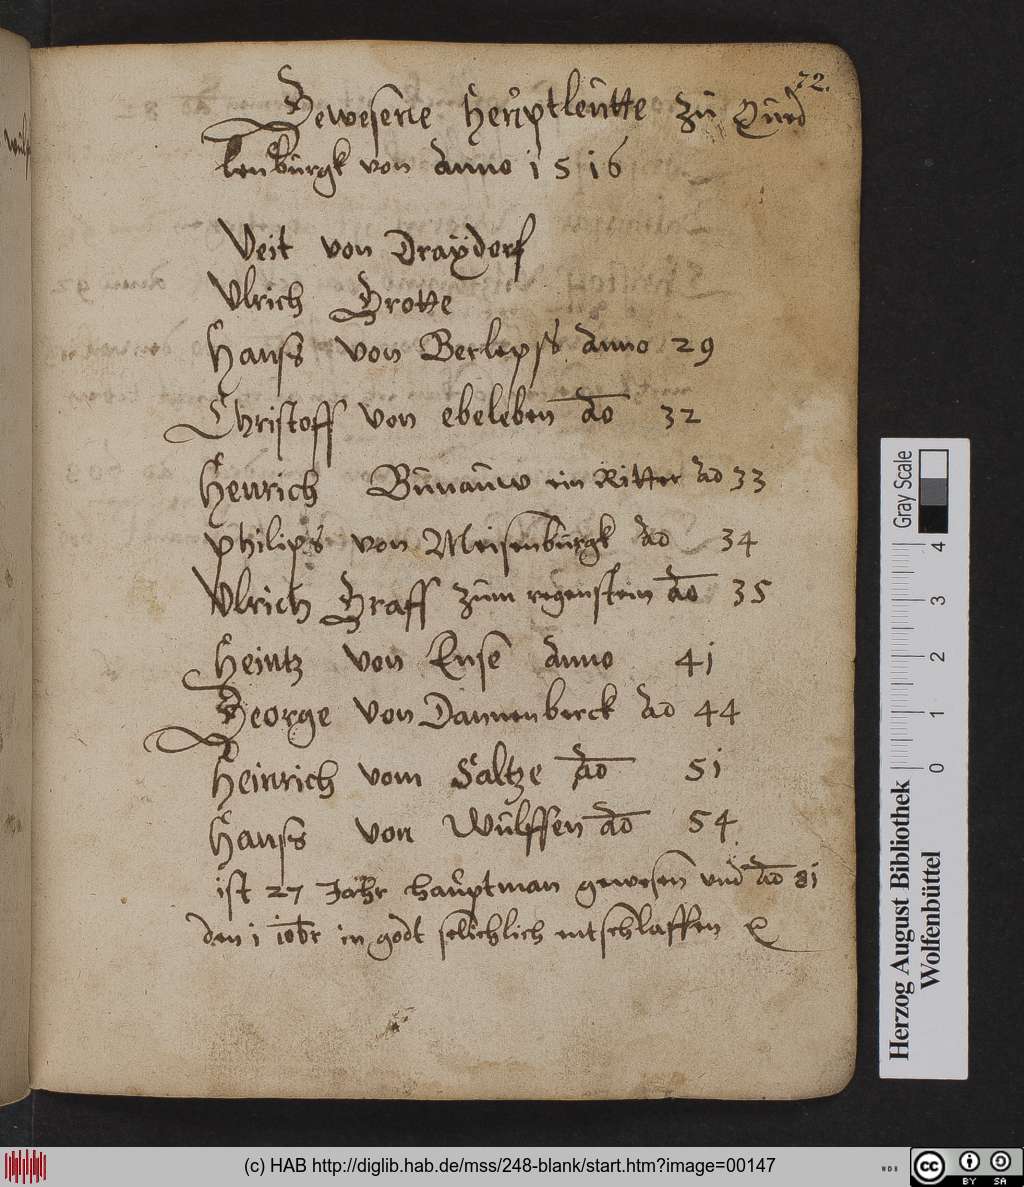 72.
Gewesene Heüptleütte zü Qüed
lenbürgk von Anno 1516
Veit von Draÿdorf
Vlrich Grotte
Hanß von Berlepß Anno 29
Christoff von ebeleben Ao 32
Henrich Bünaüw ein Ritter Ao 33
Philips von Meisenbürgk Ao 34
Vlrich Graff züm regenstein Ao 35
Heintz von Ense Anno 41
George von Dannenberck Ao 44
Heinrich vom Saltze Ao 51
Hanß von Wülffen Ao 54
ist 27 Jahr haüptman gewesen vnd Ao 81
den 1 10br in godt selichlich entschlaffen
Gray Scale
4
3
2
1
0
Herzog August Bibliothek
Wolfenbüttel
(c) HAB http://diglib.hab.de/mss/248-blank/start.htm?image=00147
WDB
cc
BY SA